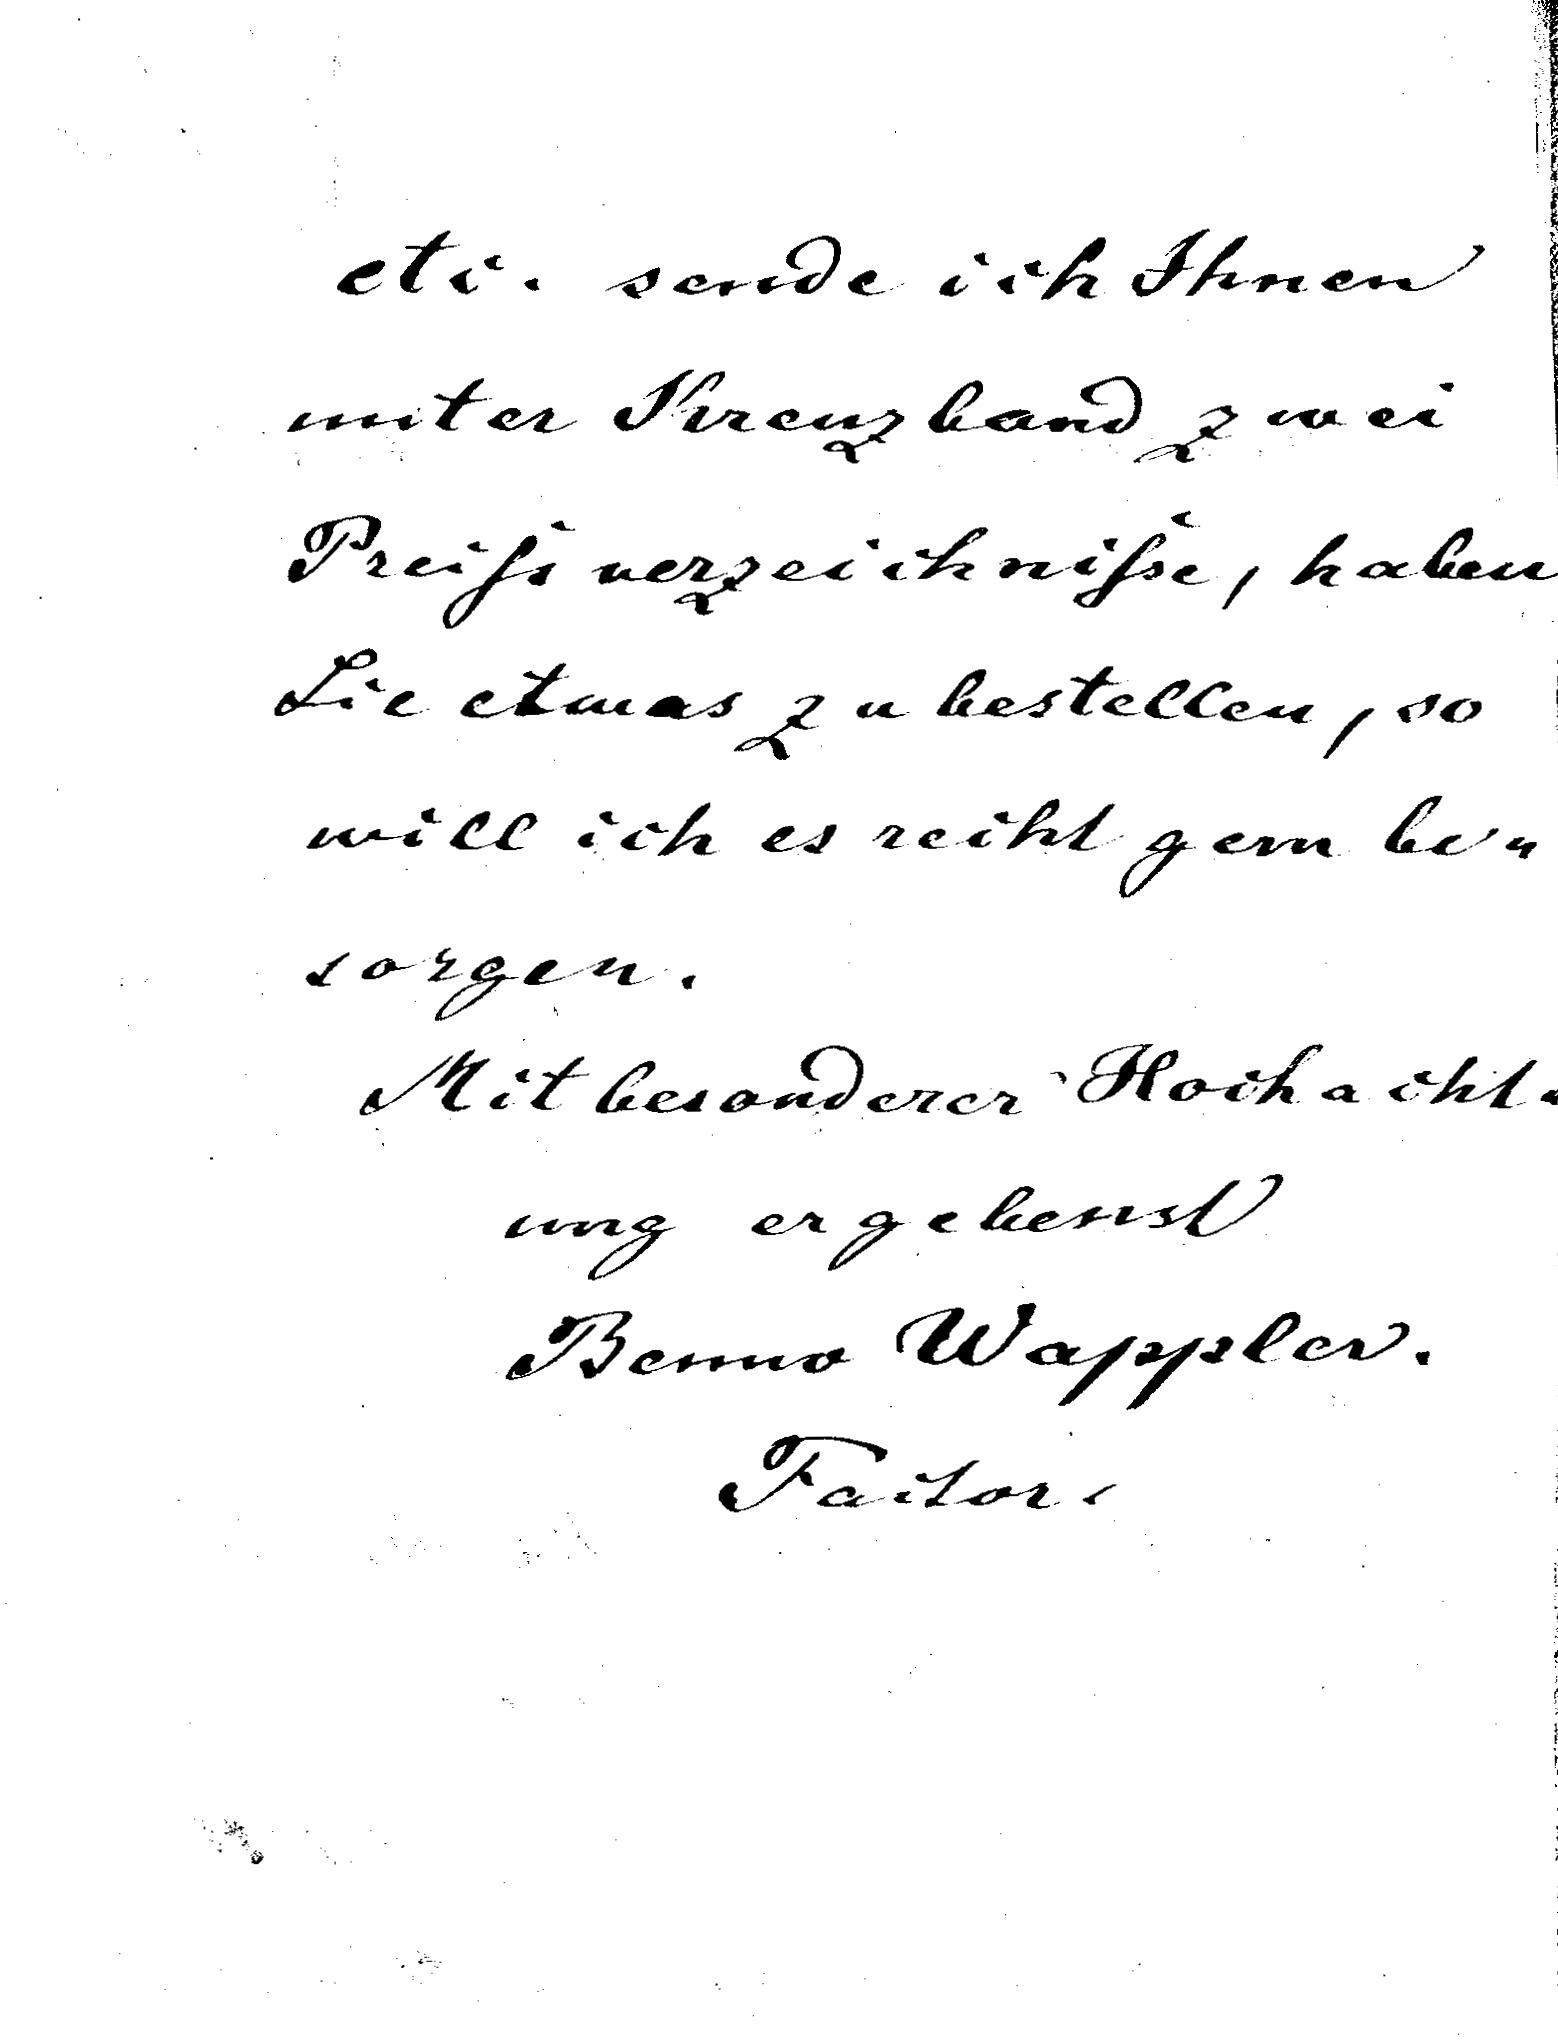 etc. sende ich Ihnen
unter Kreuzband zwei
Preißverzeichniße, haben
Sie etwas zu bestellen, so
will ich es recht gern be"
sorgen.
Mit besonderer Hochacht"
ung ergebenst
Benno Wappler.
Factor.